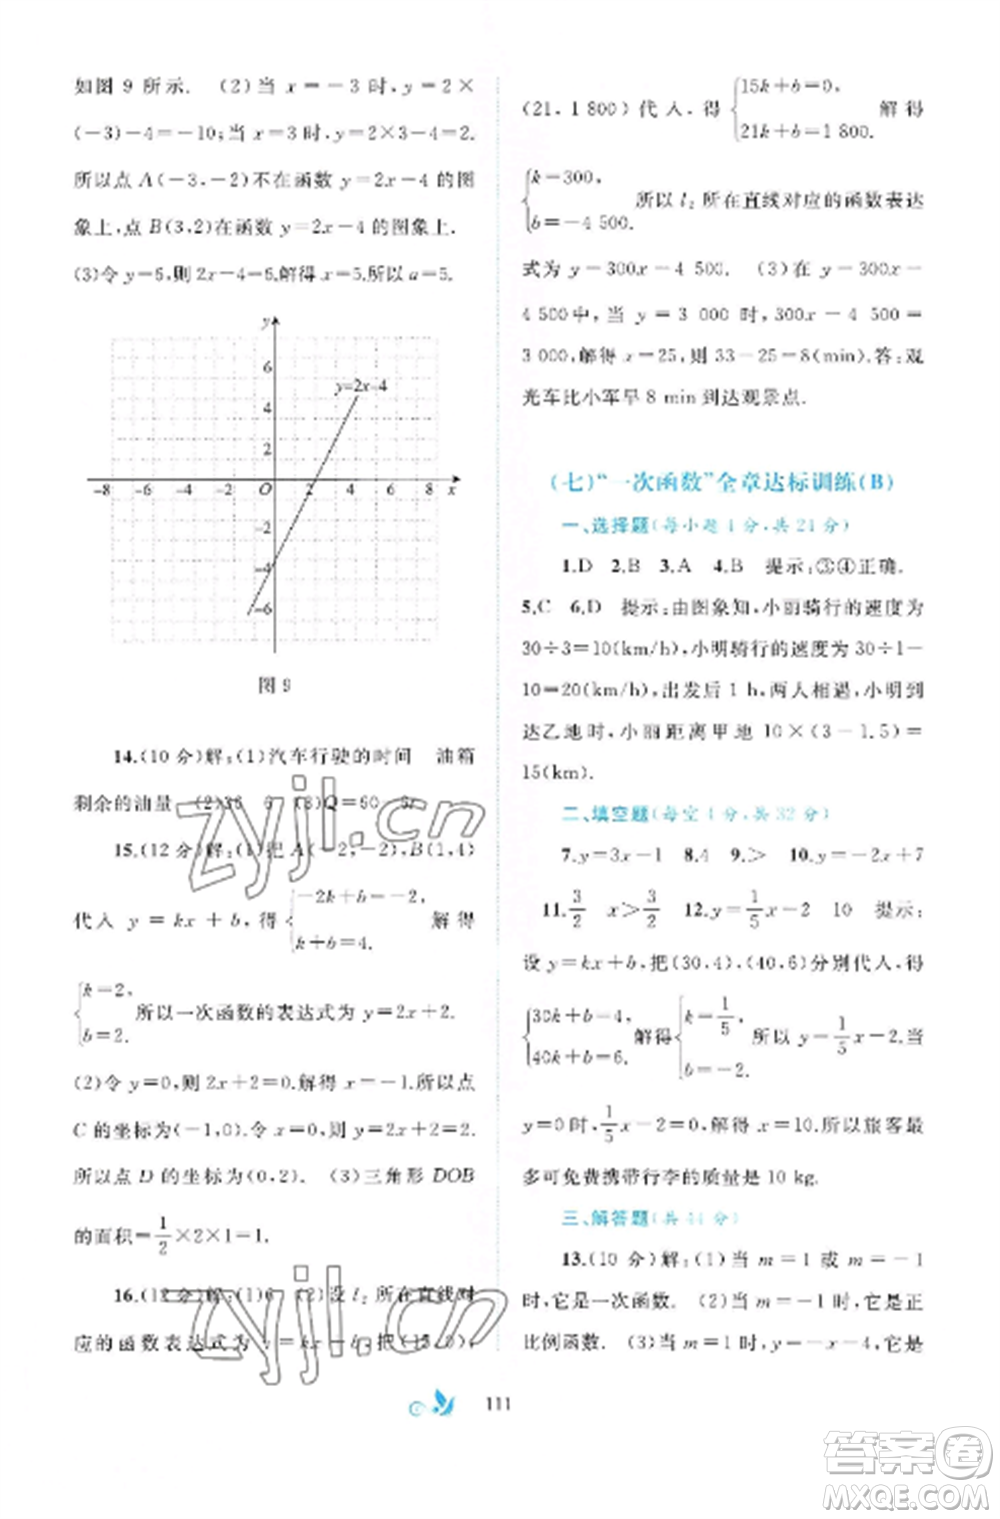 如图 9 所示. (2)当 x=-3 时,y=2×
(-3)-4=-10;当 x=3 时,y=2×3-4=2.
所以点 A(-3,-2)不在函数 y=2x-4 的图
象上,点 B(3,2)在函数 y=2x-4 的图象上.
(3)令 y=6,则 2x-4=6,解得 x=5,所以 a=5.
y
6
y=2x-4
4
2
-8 -6 -4 -2 O 2 4 6 8 x
-2
-4
-6
图 9
14.(10 分)解:(1)汽车行驶的时间 油箱
剩余的油量 (2)36 6 (3)Q=60-6t
15.(12 分)解:(1)把 A(-2,-2),B(1,4)
代入 y=kx+b,得 {-2k+b=-2, k+b=4. 解得
{k=2, b=2. 所以一次函数的表达式为 y=2x+2.
(2)令 y=0,则 2x+2=0,解得 x=-1.所以点
C 的坐标为(-1,0).令 x=0,则 y=2x+2=2.
所以点 D 的坐标为(0,2). (3)三角形 DOB
的面积=1/2×2×1=1.
16.(12 分)解:(1)6 (2)设 l₂ 所在直线对
应的函数表达式为 y=kx+b,把(15,0),
(21,1 800)代人,得 {15k+b=0, 21k+b=1 800. 解得
{k=300, b=-4 500. 所以 l₂ 所在直线对应的函数表达
式为 y=300x-4 500. (3)在 y=300x-
4 500中,当 y=3 000 时,300x-4 500=
3 000,解得 x=25,则 33-25=8(min).答:观
光车比小军早 8 min 到达观景点.
(七)“一次函数”全章达标训练(B)
一、选择题(每小题 4 分,共 24 分)
1.D 2.B 3.A 4.B 提示:③④正确.
5.C 6.D 提示:由图象知,小丽骑行的速度为
30÷3=10(km/h),小明骑行的速度为 30÷1-
10=20(km/h),出发后 1 h,两人相遇,小明到
达乙地时,小丽距离甲地 10×(3-1.5)=
15(km).
二、填空题(每空 4 分,共 32 分)
7.y=3x-1 8.4 9.> 10.y=-2x+7
11.3/2 x>3/2 12.y=1/5x-2 10 提示:
设 y=kx+b,把(30,4),(40,6)分别代人,得
{30k+b=4, 40k+b=6. 解得 {k=1/5, b=-2. 所以 y=1/5x-2,当
y=0时,1/5x-2=0,解得 x=10.所以旅客最
多可免费携带行李的质量是 10 kg.
三、解答题(共 44 分)
13.(10 分)解:(1)当 m=1 或 m=-1
时,它是一次函数. (2)当 m=-1时,它是正
比例函数. (3)当 m=1时,y=2x+2.它是
111
zyjl.cn
zyjl.cn
答案圈
MXQE.COM